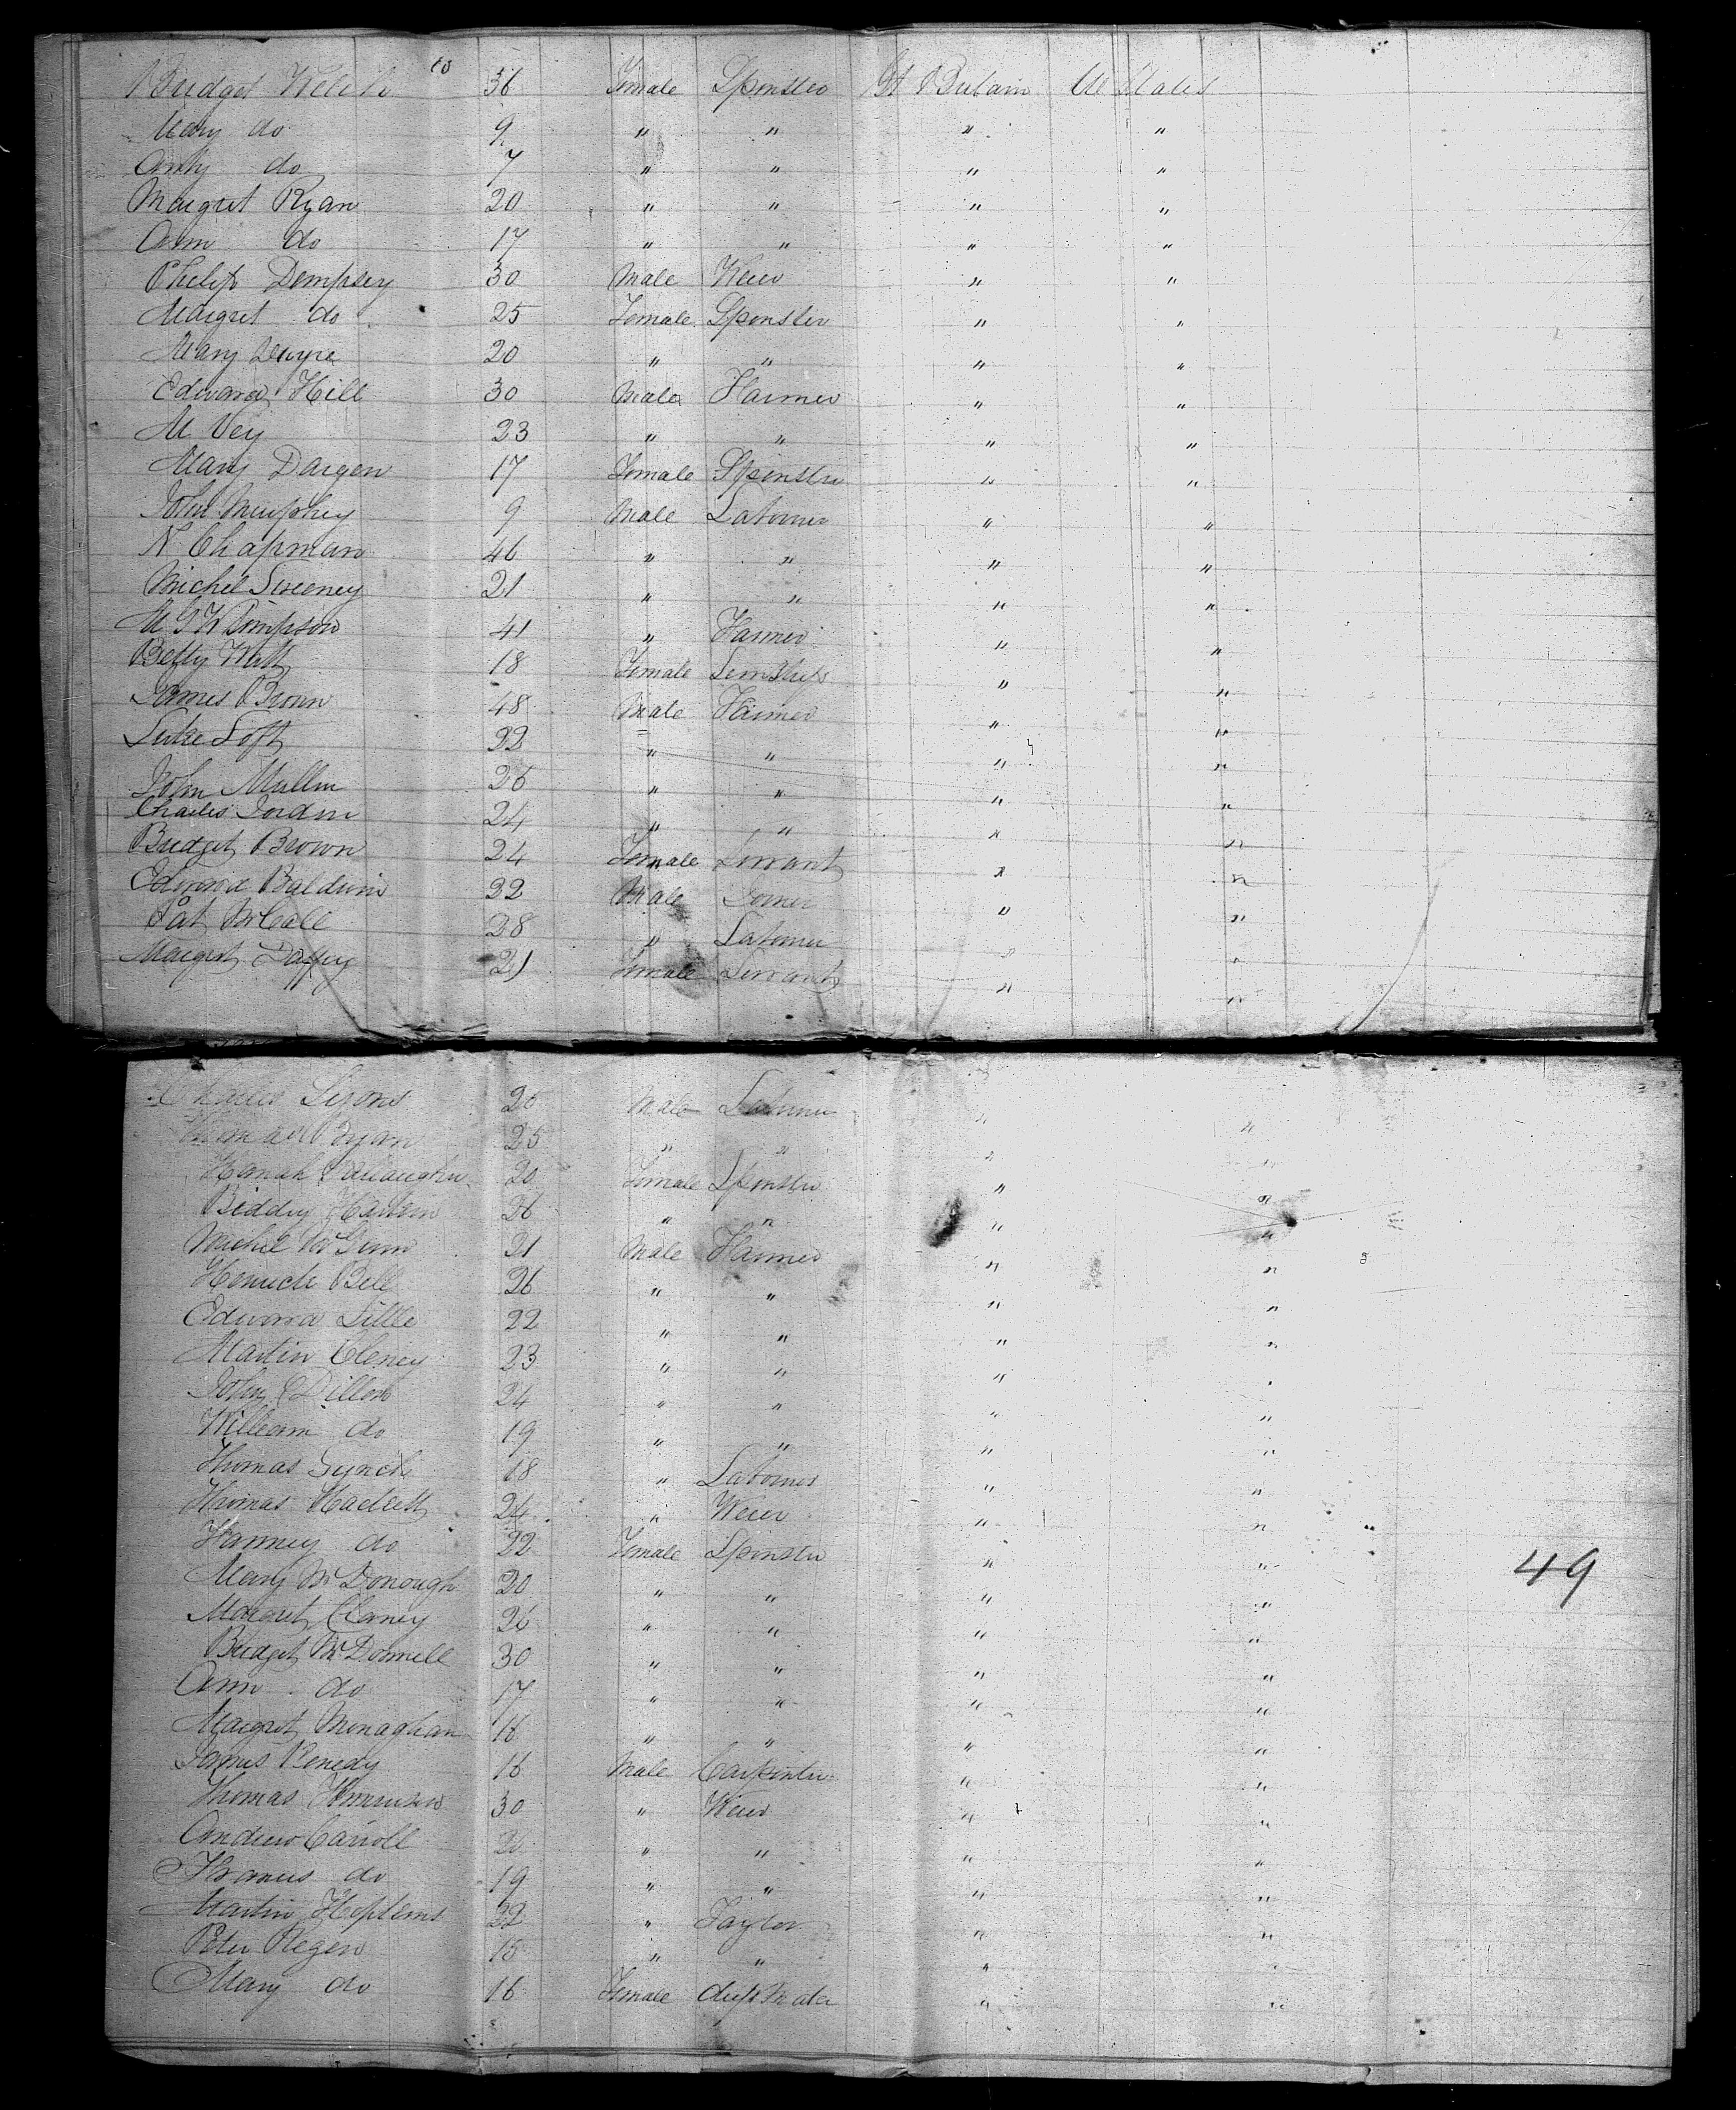 Bridget Welch 36 Female Spinster Gt Britain U States
Mary do 9 " " " "
Anty do 7 " " " "
Margret Ryan 20 " " " "
Ann do 17 " " " "
Philip Dempsey 30 Male " "
Margret do 25 Female Spinster " "
Mary Dwyre 20 " " " "
Edward Hill 30 Male Farmer " "
M Vey 23 " " " "
Mary Dargen 17 Female Spinster " "
John Murphey 9 Male Labourer " "
N Chapman 46 " " " "
Michel Sweeney 21 " " " "
M G W Simpson 41 " Farmer " "
Betty Watt 18 Female " "
James Brown 48 Male Farmer " "
Luke Loft 22 " " " "
John Mullin 26 " " " "
Charles Jordin 24 " " " "
Bridget Brown 24 Female Servant " "
Edward Baldwin 22 Male " "
Pat McCall 28 " Labourer " "
Margret Daffey 21 Female Servant " "
Charles Lyons 26 Male Labourer " "
Thomas Ryan 25 " " " "
Hanah 20 Female Spinster " "
Biddy 26 " " " "
Michel McGinn 21 Male Farmer " "
Bell 26 " " " "
Edward Little 22 " " " "
Martin Cleney 23 " " " "
John Dillon 24 " " " "
William do 19 " " " "
Thomas Lynch 18 " Labourer " "
Thomas Hackett 24 " " "
Hanney do 22 Female Spinster " "
Mary McDonough 20 " " " "
Margret Clancy 26 " " " "
Bridget McDonnell 30 " " " "
Ann do 17 " " " "
Margret Monaghan 16 " " " "
James Kenedy 16 Male Carpinter " "
Thomas 30 " " "
Andrew Carroll 26 " " " "
Thomas do 19 " " " "
Martin 22 " Taylor " "
Peter Regen 15 " " " "
Mary do 16 Female " "
49